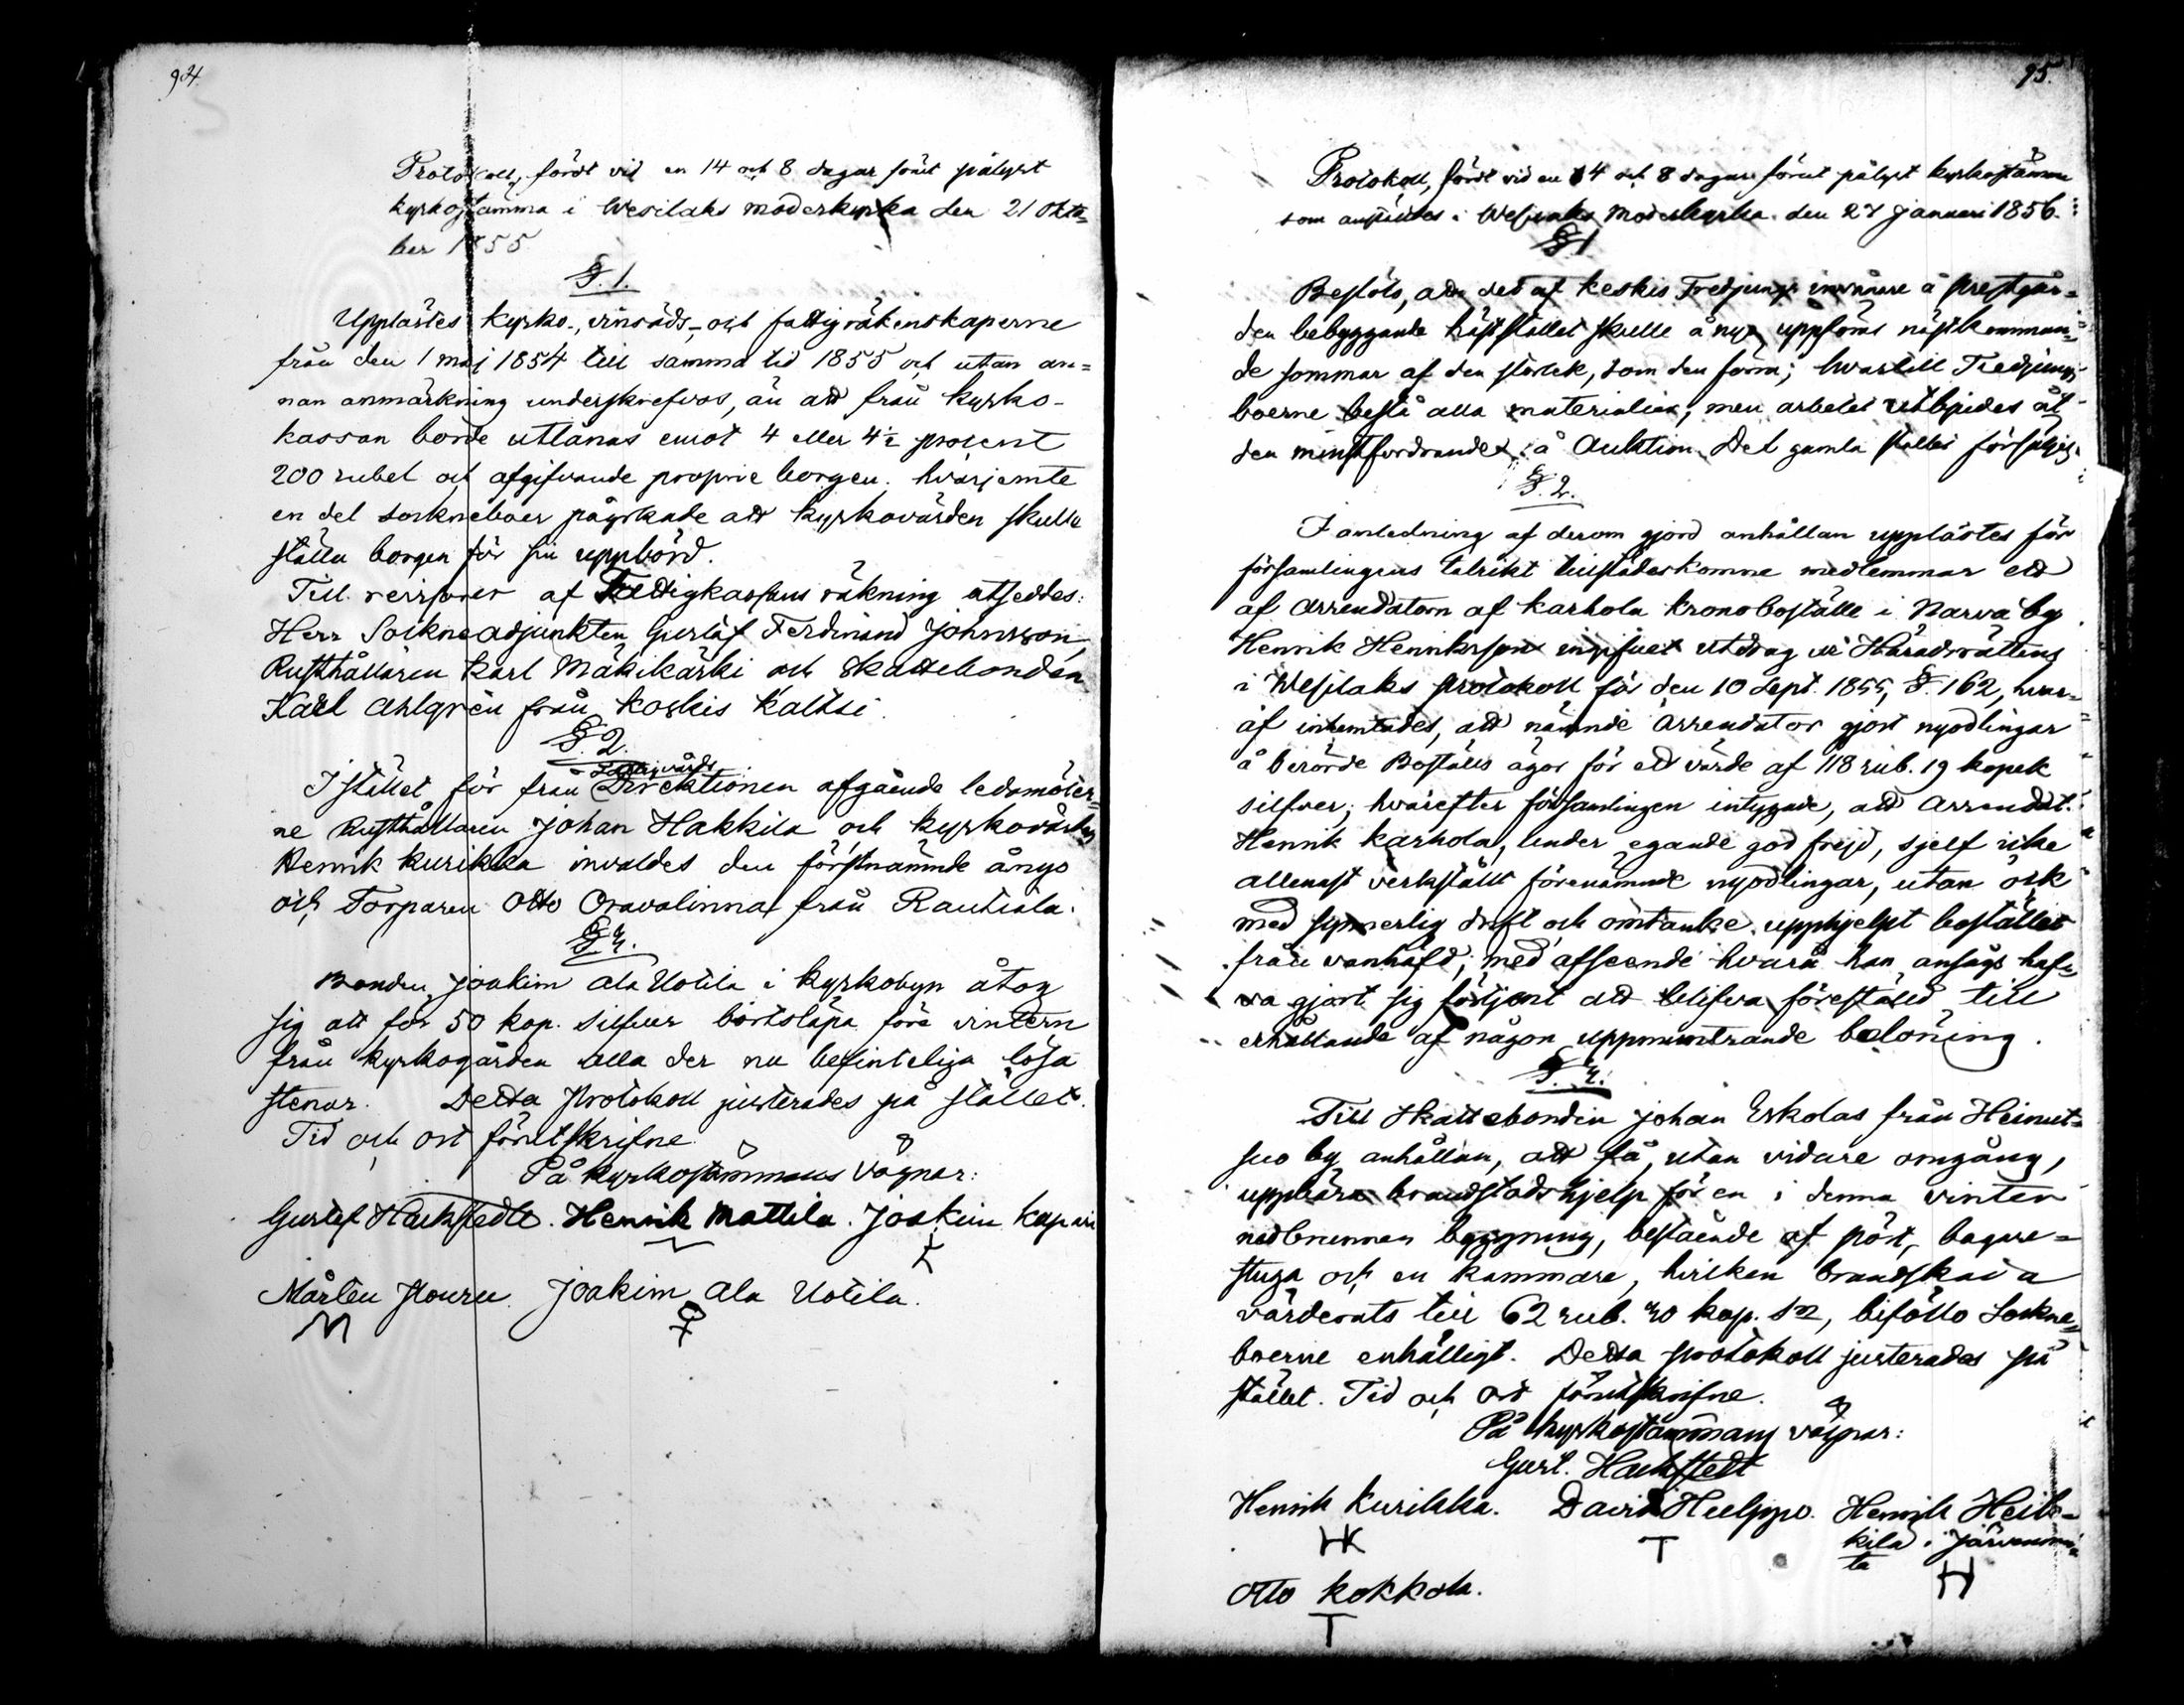 94.
Protokoll, fördt vid en 14 och 8 dagar förut pålyst
kyrkostämma i Wesilaks moderkyrka den 21 Okto=
ber 1855
§. 1.
Upplästes kyrko-, vinsäds- och fattigräkenskaperne
från den 1 maj 1854 till samma tid 1855 och utan an=
nan anmärkning underskrefvos, än att från kyrko-
kassan borde utlånas emot 4 eller 4½ procent
200 rubel och afgifvande proprie borgen. hvarjemte
en del sockneboer påyrkade att kyrkovärden skulle
ställa borgen för sin uppbörd.
Till revisorer af Fattigkassans räkning utseddes:
Herr Sockneadjunkten Gustaf Ferdinand Johnsson,
Rusthållaren Karl Mäkikärki och Skattebonden
Karl Ahlgren från Koskis Kaltsi.
§. 2.
fattigvårds
I stället för från Direktionen afgående ledamöter=
ne Rusthållaren Johan Hakkila och Kyrkovärden
Henrik Kurikka invaldes den förstnämnde ånyo
och Torparen Otto Oravalinna från Rautiala.
§. 3.
Bonden Joakim Ala Uotila i Kyrkobyn åtog
sig att för 50 kop. silfver bortsläpa före vintern
från kyrkogården alla der nu befinteliga lösa
stenar. Detta Protokoll justerades på stället.
Tid och ort förutskrifne.
På kyrkostämmans vägnar:
Gustaf Hackstedt. Henrik Mattila. Joakim
Mårten Joakim Ala Uotila.
M
95.
Protokoll, fördt vid en 14 och 8 dagar förut pålyst kyrkostämma
som anställdes i Wesilaks Moderkyrka den 27 Januari 1856.
§ 1
Beslöts, att det af Keskis Tredjungs invånare å prestgår=
den bebyggande häststallet skulle ånyo uppföras nästkomman=
de sommar af den storlek, som den förra; hvartill Tredjungs
boerne bestå alla materialier; men arbetet utbjudes åt
den minstfordrande å Auktion. Det gamla stallet försäljes.
§. 2.
I anledning af derom gjord anhållan upplästes för
församlingens talrikt tillstädeskomne medlemmar ett
af Arrendatorn af Karhola kronoboställe i Narva by
Henrik Henriksson ingifvet utdrag ur Häradsrättens
i Wesilaks protokoll för den 10 Sept. 1855, §. 162, hvar=
af inhemtades, att nämnde Arrendator gjort nyodlingar
å berörde Boställes ägor för ett värde af 118 rub. 19 kopek
silfver; hvarefter församlingen intygade, att Arrendat.
Henrik Karhola, under egande god frejd, sjelf icke
allenast verkställt förenämnde nyodlingar, utan ock
med synnerlig drift och omtanke upphjelpt bostället
från vanhäfd; med afseende hvarå han ansågs haf=
va gjort sig förtjent att blifva föreställd till
erhållande af någon uppmuntrande belöning.
§. 3.
Till Skattebonden Johan Eskolas från Heinut=
suo by anhållan, att få, utan vidare omgång,
uppbära brandstodshjelp för en i denna vinter
nedbrunnen byggning, bestående af pört, bagare=
stuga och en kammare, hvilken brandskada
värderats till 62 rub. 30 kop. Sr, biföllo Sockne=
boerne enhälligt. Detta protokoll justerades på
stället. Tid och ort förutskrifne.
På kyrkostämmans vägnar:
Gust. Hackstedt
Henrik Kurikka. David Hulppo. Henrik Heik=
kilä i Järvenran=
ta
HK T H
Otto Kokkola.
T